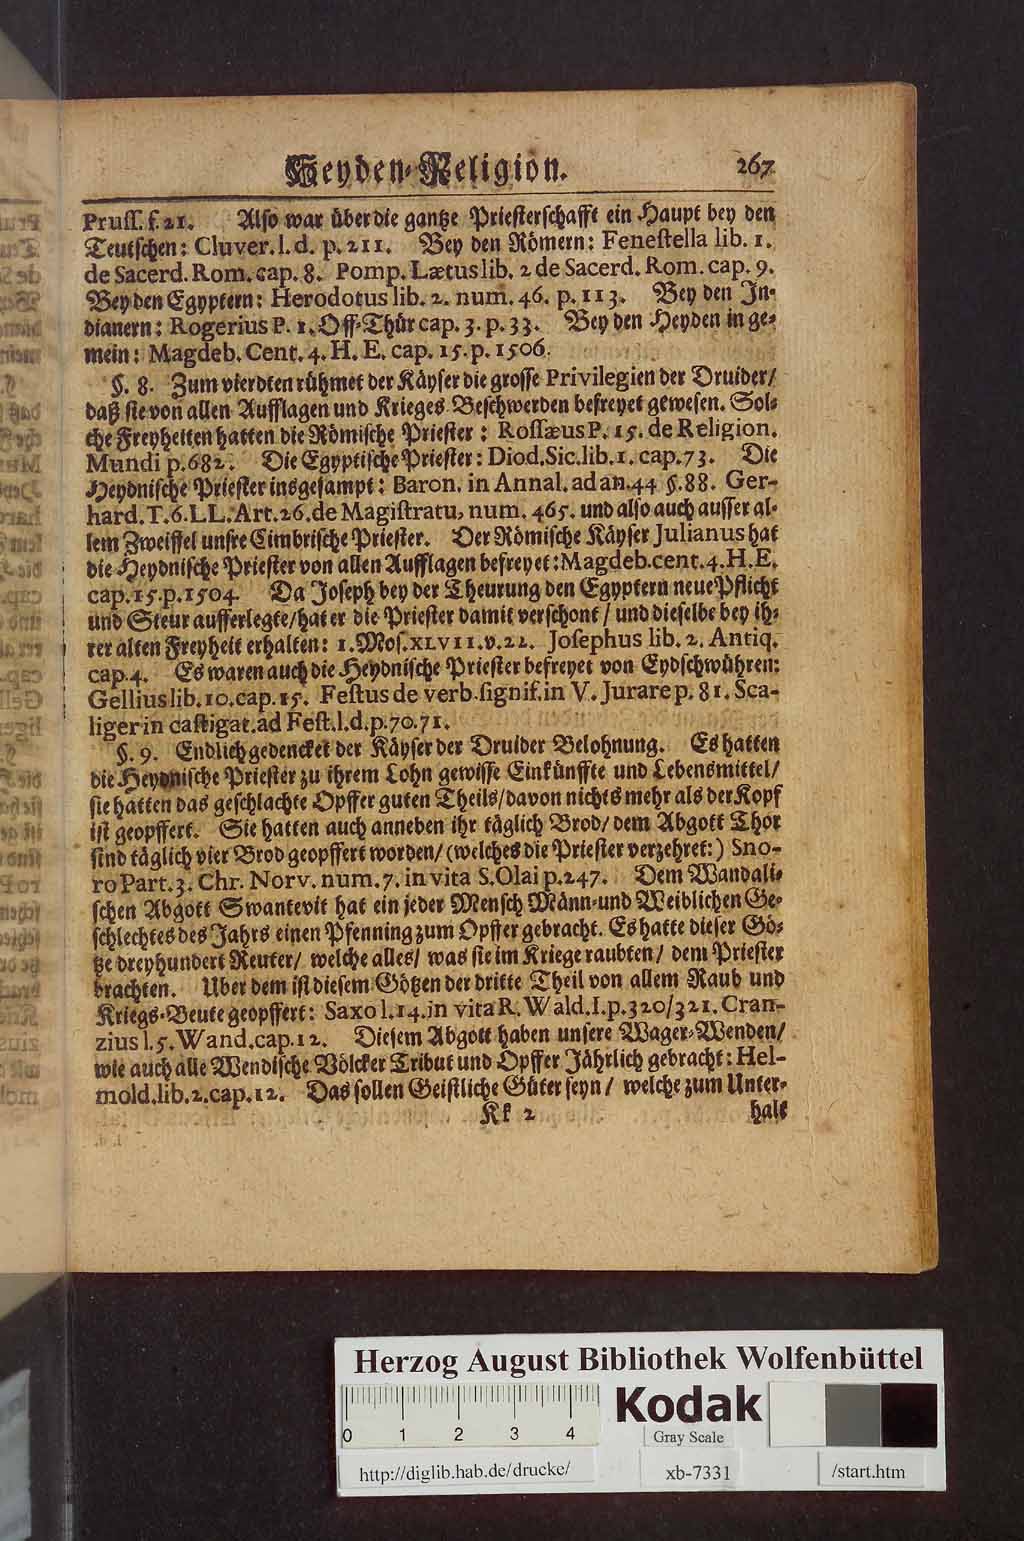 Heyden-Religion. 267
Pruſſ. f. 21. Alſo war über die gantze Prieſterſchafft ein Haupt bey den
Teutſchen: Cluver. l. d. p. 211. Bey den Römern: Feneſtella lib. 1.
de Sacerd. Rom. cap. 8. Pomp. Lætus lib. 2 de Sacerd. Rom. cap. 9.
Bey den Egyptern: Herodotus lib. 2. num. 46. p. 113. Bey den In-
dianern: Rogerius P. 1. Off-Thür cap. 3. p. 33. Bey den Heyden in ge-
mein: Magdeb. Cent. 4. H. E. cap. 15. p. 1506.
§. 8. Zum vierdten rühmet der Käyſer die groſſe Privilegien der Druider/
daß ſie von allen Aufflagen und Krieges-Beſchwerden befreyet geweſen. Sol-
che Freyheiten hatten die Römiſche Prieſter: Roſſæus P. 15. de Religion.
Mundi p. 682. Die Egyptiſche Prieſter: Diod. Sic. lib. 1. cap. 73. Die
Heydniſche Prieſter insgeſampt: Baron. in Annal. ad an. 44 §. 88. Ger-
hard. T. 6. LL. Art. 26. de Magiſtratu, num. 465. und alſo auch auſſer al-
lem Zweiffel unſre Cimbriſche Prieſter. Der Römiſche Käyſer Julianus hat
die Heydniſche Prieſter von allen Aufflagen befreyet: Magdeb. cent. 4. H. E.
cap. 15. p. 1504. Da Joſeph bey der Theurung den Egyptern neue Pflicht
und Steur aufferlegte/ hat er die Prieſter damit verſchont/ und dieſelbe bey ih-
rer alten Freyheit erhalten: 1. Moſ. XLVII. v. 22. Joſephus lib. 2. Antiq.
cap. 4. Es waren auch die Heydniſche Prieſter befreyet von Eydſchwühren:
Gellius lib. 10. cap. 15. Feſtus de verb. ſignif. in V. Jurare p. 81. Sca-
liger in caſtigat. ad Feſt. l. d. p. 70. 71.
§. 9. Endlich gedencket der Käyſer der Druider Belohnung. Es hatten
die Heydniſche Prieſter zu ihrem Lohn gewiſſe Einkünffte und Lebensmittel/
ſie hatten das geſchlachte Opffer guten Theils/ davon nichts mehr als der Kopf
iſt geopffert. Sie hatten auch anneben ihr täglich Brod/ dem Abgott Thor
ſind täglich vier Brod geopffert worden/ (welches die Prieſter verzehret:) Sno-
ro Part. 3. Chr. Norv. num. 7. in vita S. Olai p. 247. Dem Wandali-
ſchen Abgott Swantevit hat ein jeder Menſch Männ- und Weiblichen Ge-
ſchlechtes des Jahrs einen Pfenning zum Opffer gebracht. Es hatte dieſer Gö-
tze dreyhundert Reuter/ welche alles/ was ſie im Kriege raubten/ dem Prieſter
brachten. Uber dem iſt dieſem Götzen der dritte Theil von allem Raub und
Kriegs-Beute geopffert: Saxo l. 14. in vita R. Wald. I. p. 320/321. Cran-
zius l. 5. Wand. cap. 12. Dieſem Abgott haben unſere Wager-Wenden/
wie auch alle Wendiſche Völcker Tribut und Opffer Jährlich gebracht: Hel-
mold. lib. 2. cap. 12. Das ſollen Geiſtliche Güter ſeyn/ welche zum Unter-
Kk 2 halt
Herzog August Bibliothek Wolfenbüttel
0 1 2 3 4 Kodak
Gray Scale
http://diglib.hab.de/drucke/ xb-7331 /start.htm